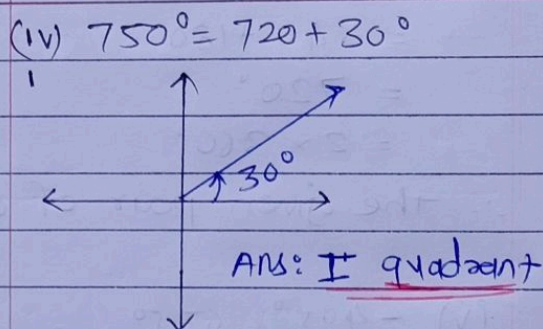 (iv) 750° = 720 + 30°
30°
Ans: I quadrant